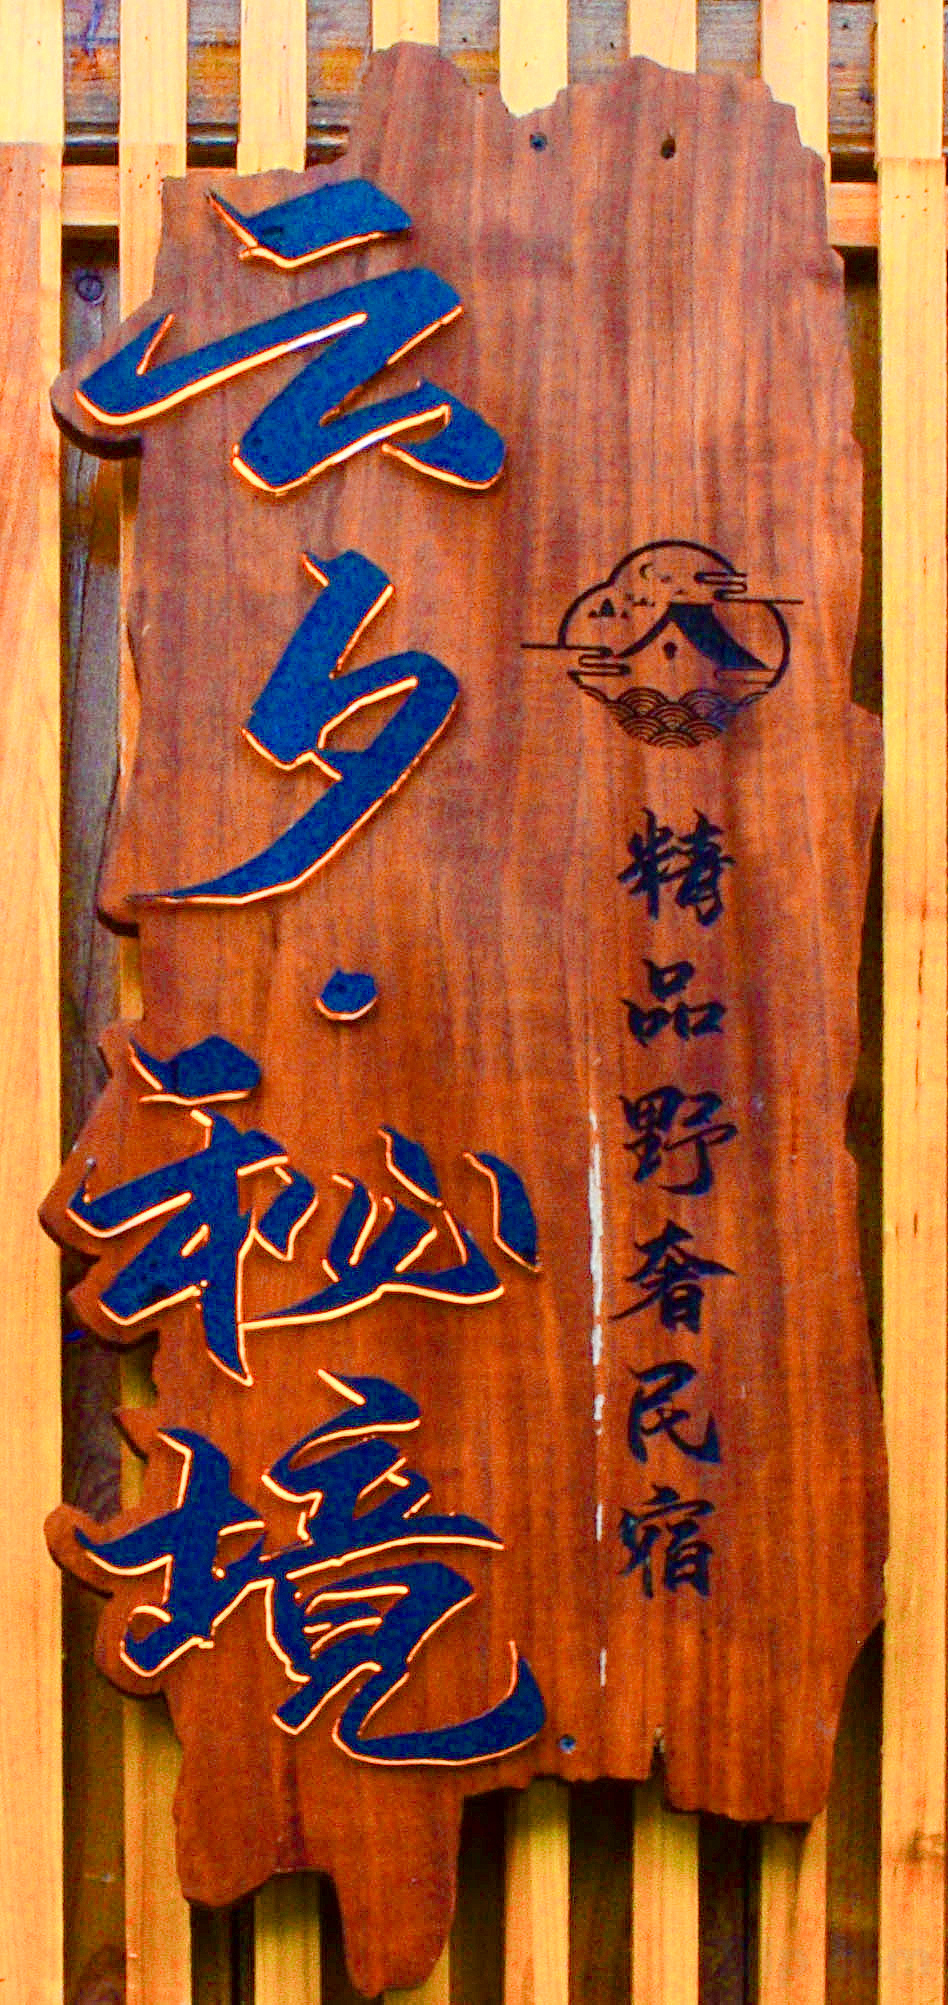 云夕·秘境
精品野奢民宿